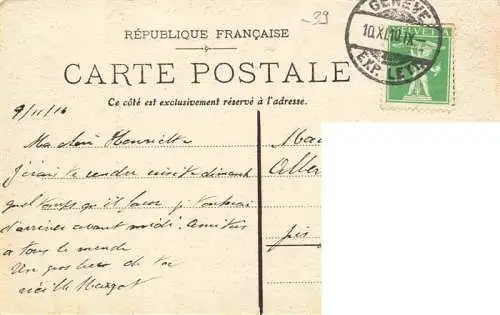 -39
RÉPUBLIQUE FRANÇAISE
CARTE POSTALE
Ce côté est exclusivement réservé à l'adresse.
GENÈVE
10.XI.10.IX-
EXP. LETT.
HELVETIA
9/11/10
Ma chère Henriette
J'irai te rendre visite dimanche
quel temps qu'il fasse je
d'arriver avant midi. Amitiés
à tous le monde
Un gros de ta
vieille Margot